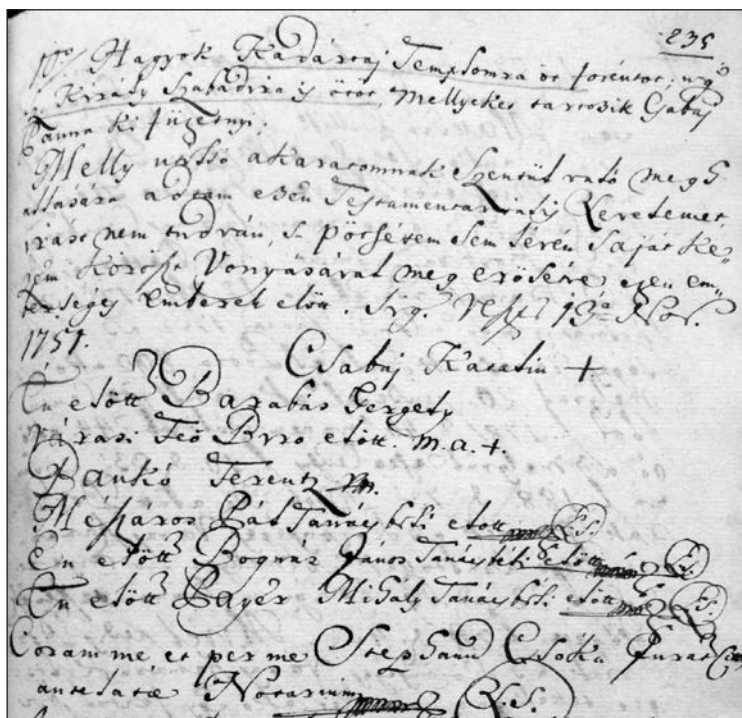 235
Hagyok Kadártaj Templomra öt forintot, ugy
Király Szabadira is ötöt, mellyeket tartozik Csabaj
Panna ki fizetnyi.
Melly utolsó akaratomnak Szentül való meg
attam ezen Testamentarialis Levelemet
irást nem tudván, s pöcsétem sem lévén Saját Ke-
zem Kereszt Vonyásával meg erösétve, ezen em-
berséges Emberek elött. Sig. 13a Nov.
1751.
Csabaj Katalin +
Én elöttem Barabás Gergely
Várasi Feö Biro elött. m.a.+.
Pankó Ferentz
Mészáros Pál Tanácsbéli elött L.S.
Én elöttem Bognár János Tanácsbéli elött L.S.
Én elöttem Payer Mihály Tanácsbéli elött L.S.
Coram me et per me Stephanum Csóka Jurat
antelatae Notarium L.S.